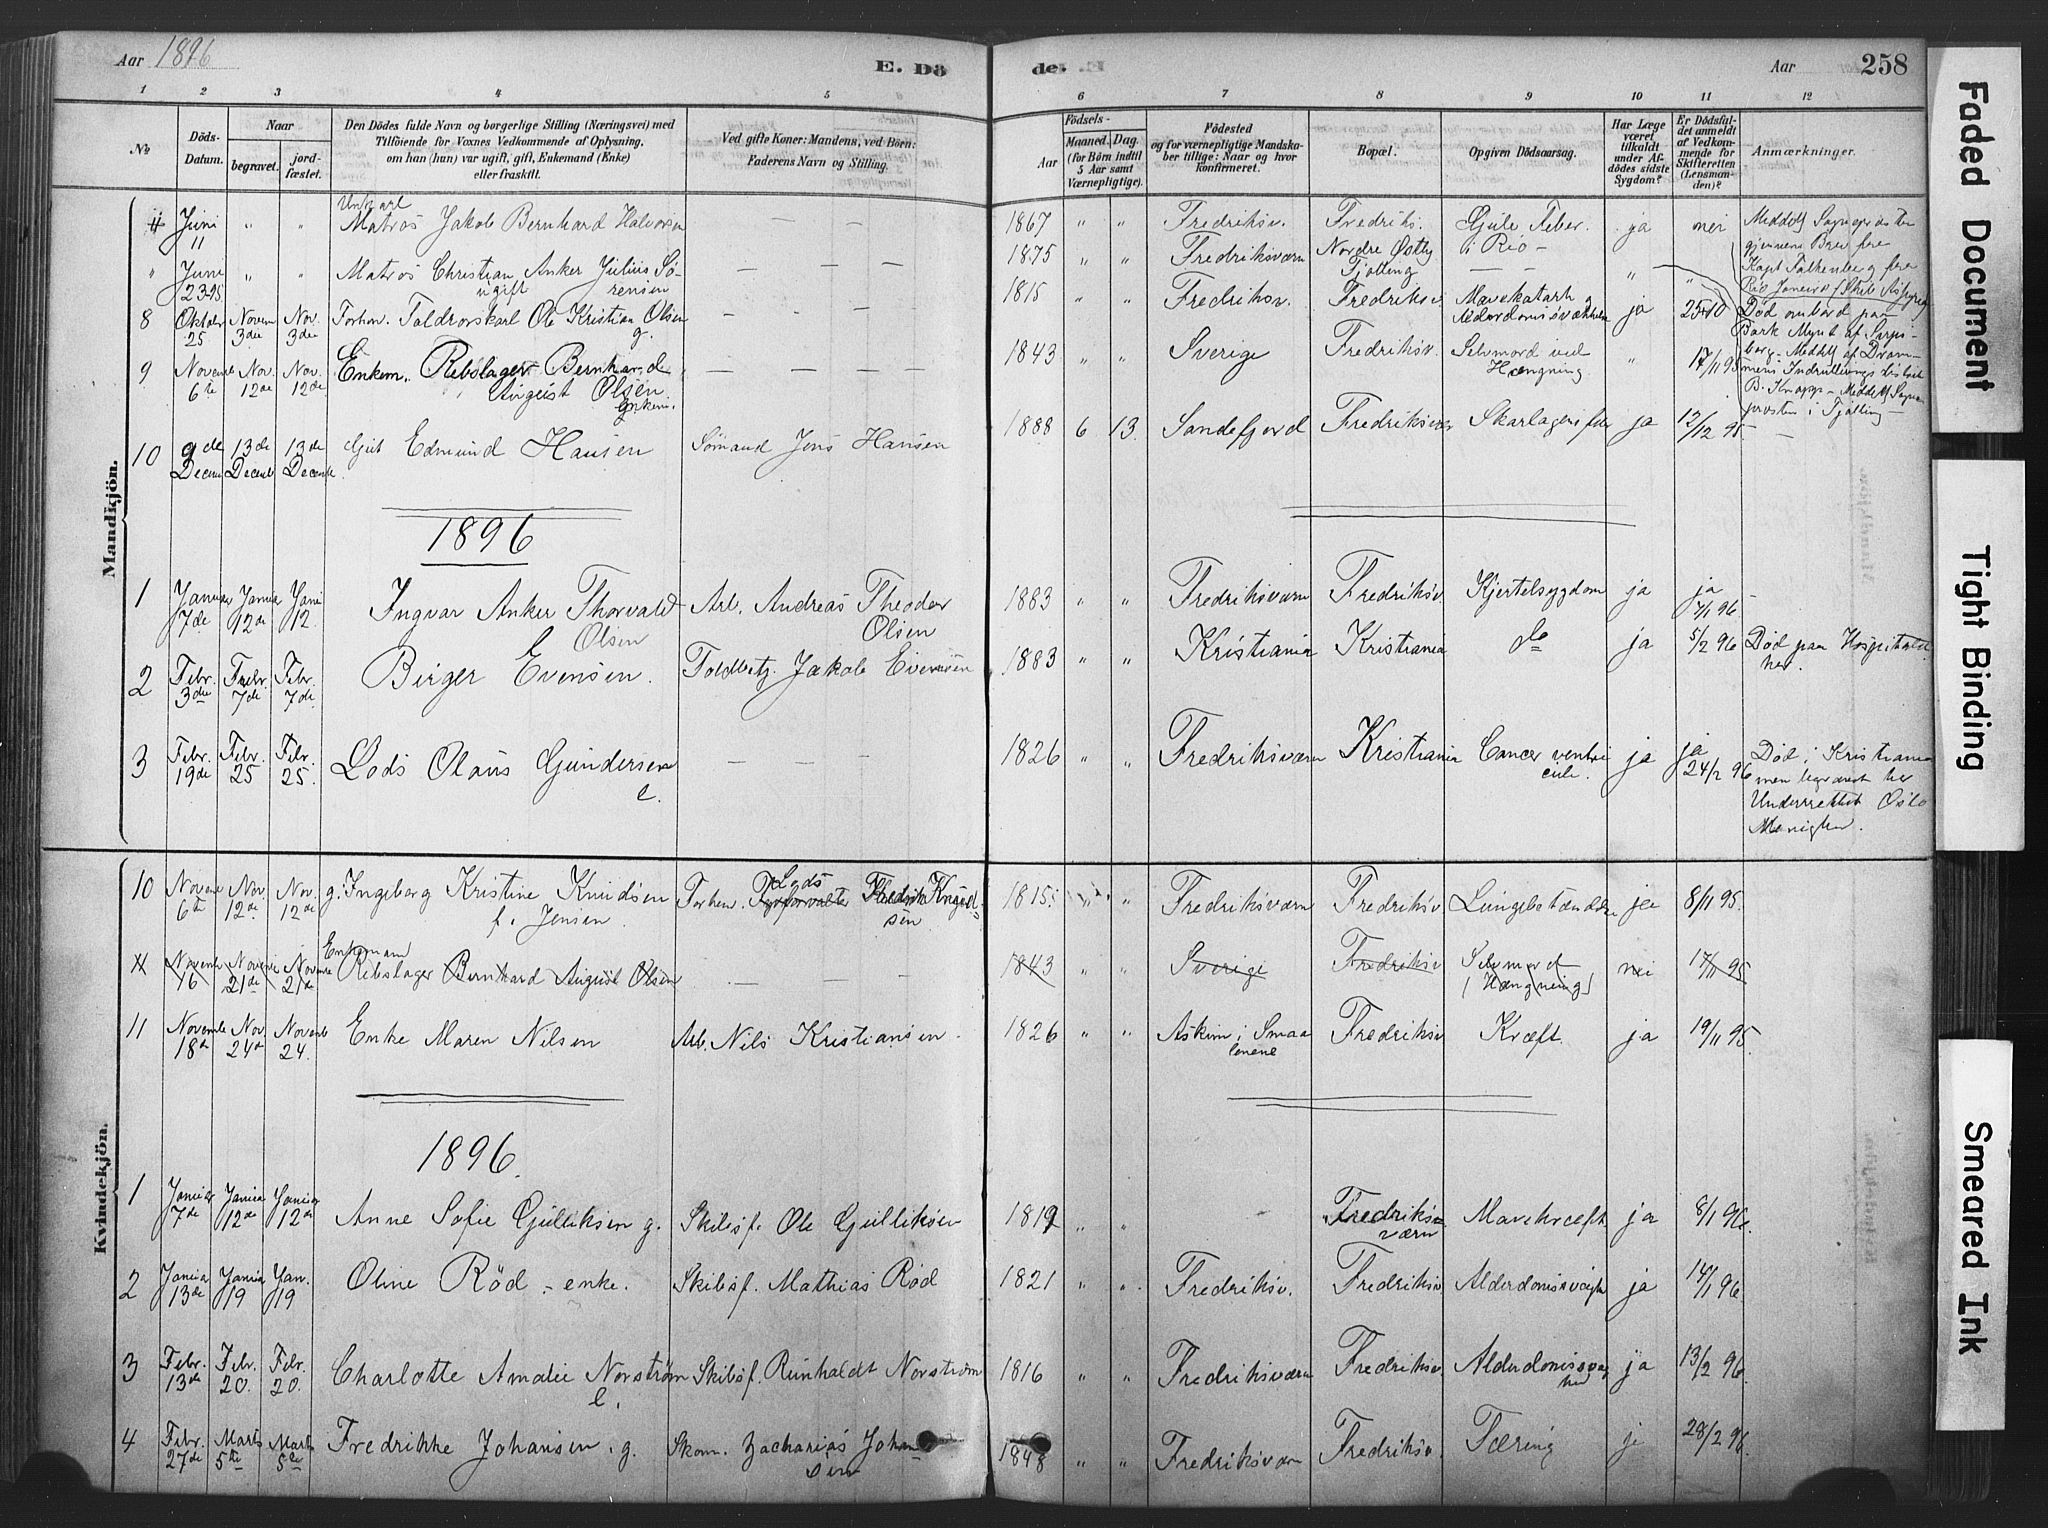 Aar 1896
E. Dö
de.
Aar
258
1 2 3 4 5 6 7 8 9 10 11 12
№
Döds-Datum.
Naar
begravet.
jord-fæstet.
Den Dödes fulde Navn og borgerlige Stilling (Næringsvei) med
Tilföiende for Voxnes Vedkommende af Oplysning,
om han (hun) var ugift, gift, Enkemand (Enke)
eller fraskilt.
Ved gifte Koner: Mandens, ved Börn:
Faderens Navn og Stilling.
Födsels-
Aar
Maaned. Dag.
(for Börn indtil
5 Aar samt
Værnepligtige).
Födested
og for værnepligtige Mandska-
ber tillige: Naar og hvor
konfirmeret.
Bopæl.
Opgiven Dödsaarsag.
Har Læge
været
tilkaldt
under Af-
dödes sidste
Sygdom?
Er Dödsfal-
det anmeldt
af Vedkom-
mende for
Skifteretten
(Lensman-
den)?
Anmærkninger.
Mandkjön.
Ungkarl
4 Juni 11 " " Matros Jakob Bernhard Halvorsen — — 1867 " " Fredriksv. Fredriks. Gule Feber ja nei
" Juni 23-95 " " Matros Christian Anker Julius Sörensen ugift — — — 1875 " " Fredriksværn Nordre Østby Tjølling i Rio — "
8 Oktober 25 Novem 3die Nov. 3die Forhen. Toldrorskarl Ole Kristian Olsen g. — — — 1815 " " Fredriksv. Fredriksv Mavekatarh og Alderdomssvækkelse ja 25/10
9 Novemb 6te Nov. 12de Nov. 12de Enkem. Rebslager Bernhard August Olsen Enkem. — — — — 1843 " " Sverige Fredriksv. Selvmord ved Hængning " 17/11 95
Meddelt Sogneprosten
gjennem Brev fra
Kapt Falkenberg fra
Rio Janeiro
Død ombord paa
Bark Mynt af
Meddelt af Dram-
mens
B. Knapp — Meddelt Sogne
prosten i Tjølling —
10 9de Decem 13de Decemb 13de Decemb Gut Edmund Hansen Sømand Jens Hansen 1888 6 13 Sandefjord Fredriksv Skarlagensfeber ja 12/12 95. —
1896
1 Januar 7de Januar 12de Jan 12 Ingvar Anker Thorvald Olsen Arb. Andreas Theodor Olsen 1883 " " Fredriksværn Fredriksv. Kjertelsygdom ja ja 7/1 96
2 Febr. 3die Febr. 7de Febr. 7de Birger Evensen. Toldbetj. Jakob Evensen 1883 " " Kristiania Kristiania do ja 5/2 96 Død paa Hospitalet her.
3 Febr. 19de Febr. 25 Febr. 25. Lods Olaus Gundersen e. — — — 1826 " " Fredriksværn Kristiania Cancer ventriculi. ja ja 24/2 96 Død i Kristiania
men begravet her
Underrettet Oslo
Menighed.
Kvindekjön.
10 Novemb 6te Nov 12de Nov. 12de g. Ingeborg Kristine Knudsen f. Jensen Forhen. Fyrforvalter Lods Fredrik Knudsen 1815 " " Fredriksværn Fredriksv Lungebetændelse ja 8/11 95.
11 Novemb 16 Novemb 21de Novemb 21de Enkemand Rebslager Bernhard August Olsen — — 1843 " " Sverige Fredriksv Selvmord (Hængning) nei 17/11 95
11 Novemb 18de Nov 24de Novemb 24. Enke Maren Nilsen Arb. Nils Kristiansen. 1826 " " Askim i Smaalenene Fredriksv Kræft. ja 19/11 95.
1896.
1 Januar 7de Januar 12de Januar 12de Anne Sofie Gulliksen g. Skibsf. Ole Gulliksen 1819 " " — Fredriksværn Mavekræft ja 8/1 96.
2 Januar 13de Januar 19 Jan. 19 Oline Rød – enke. Skibsf. Mathias Rød 1821 " " Fredriksv. Fredriksv Alderdomssvaghed ja 14/1 96.
3 Febr. 13de Febr. 20. Febr. 20. Charlotte Amalie Norström e. Skibsf. Reinholdt Norström 1816 " " Fredriksværn Fredriksv. Alderdomssvaghed ja 13/2 96.
4 Febr. 27de Marts 5te Marts 5te Fredrikke Johansen. g. Skom. Zacharias Johansen 1848 " " Fredriksværn Fredriksv. Tæring ja 28/2 96.
Faded Document
Tight Binding
Smeared Ink